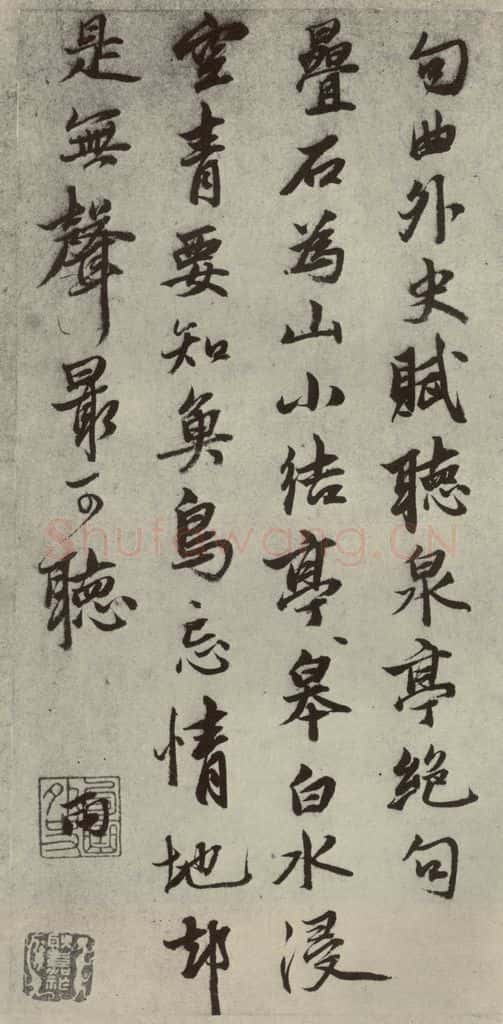 句曲外史賦聽泉亭絕句
疊石為山小結亭皋白水浸
空青要知魚鳥忘情地却
是無聲最可聽
雨
Shufawang.CN